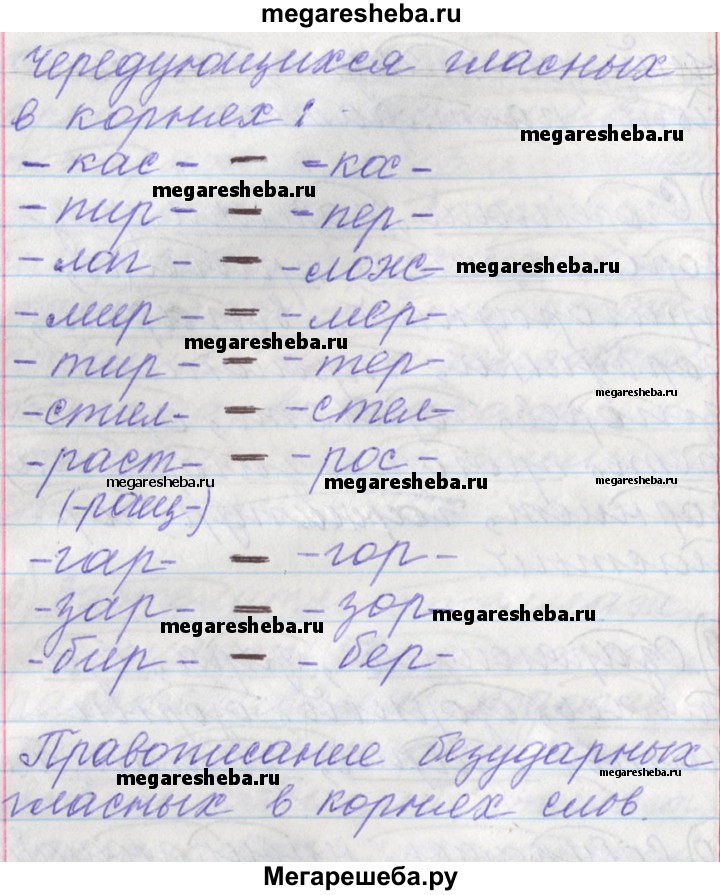 megaresheba.ru
чередующихся гласных
в корнях:
megaresheba.ru
- кас - - -кос -
megaresheba.ru
- пир - - -пер -
- лаг - -лож-
megaresheba.ru
- мир - = - мер-
megaresheba.ru
- тир - = - тер-
megaresheba.ru
-стил- = -стел-
-раст- = -рос -
megaresheba.ru megaresheba.ru megaresheba.ru
(-ращ-)
-гар- = -гор-
-зар- = - зор-
megaresheba.ru megaresheba.ru
-бир- - - бер-
Правописание безударных
megaresheba.ru megaresheba.ru
гласных в корнях слов.
Мегарешеба.ру